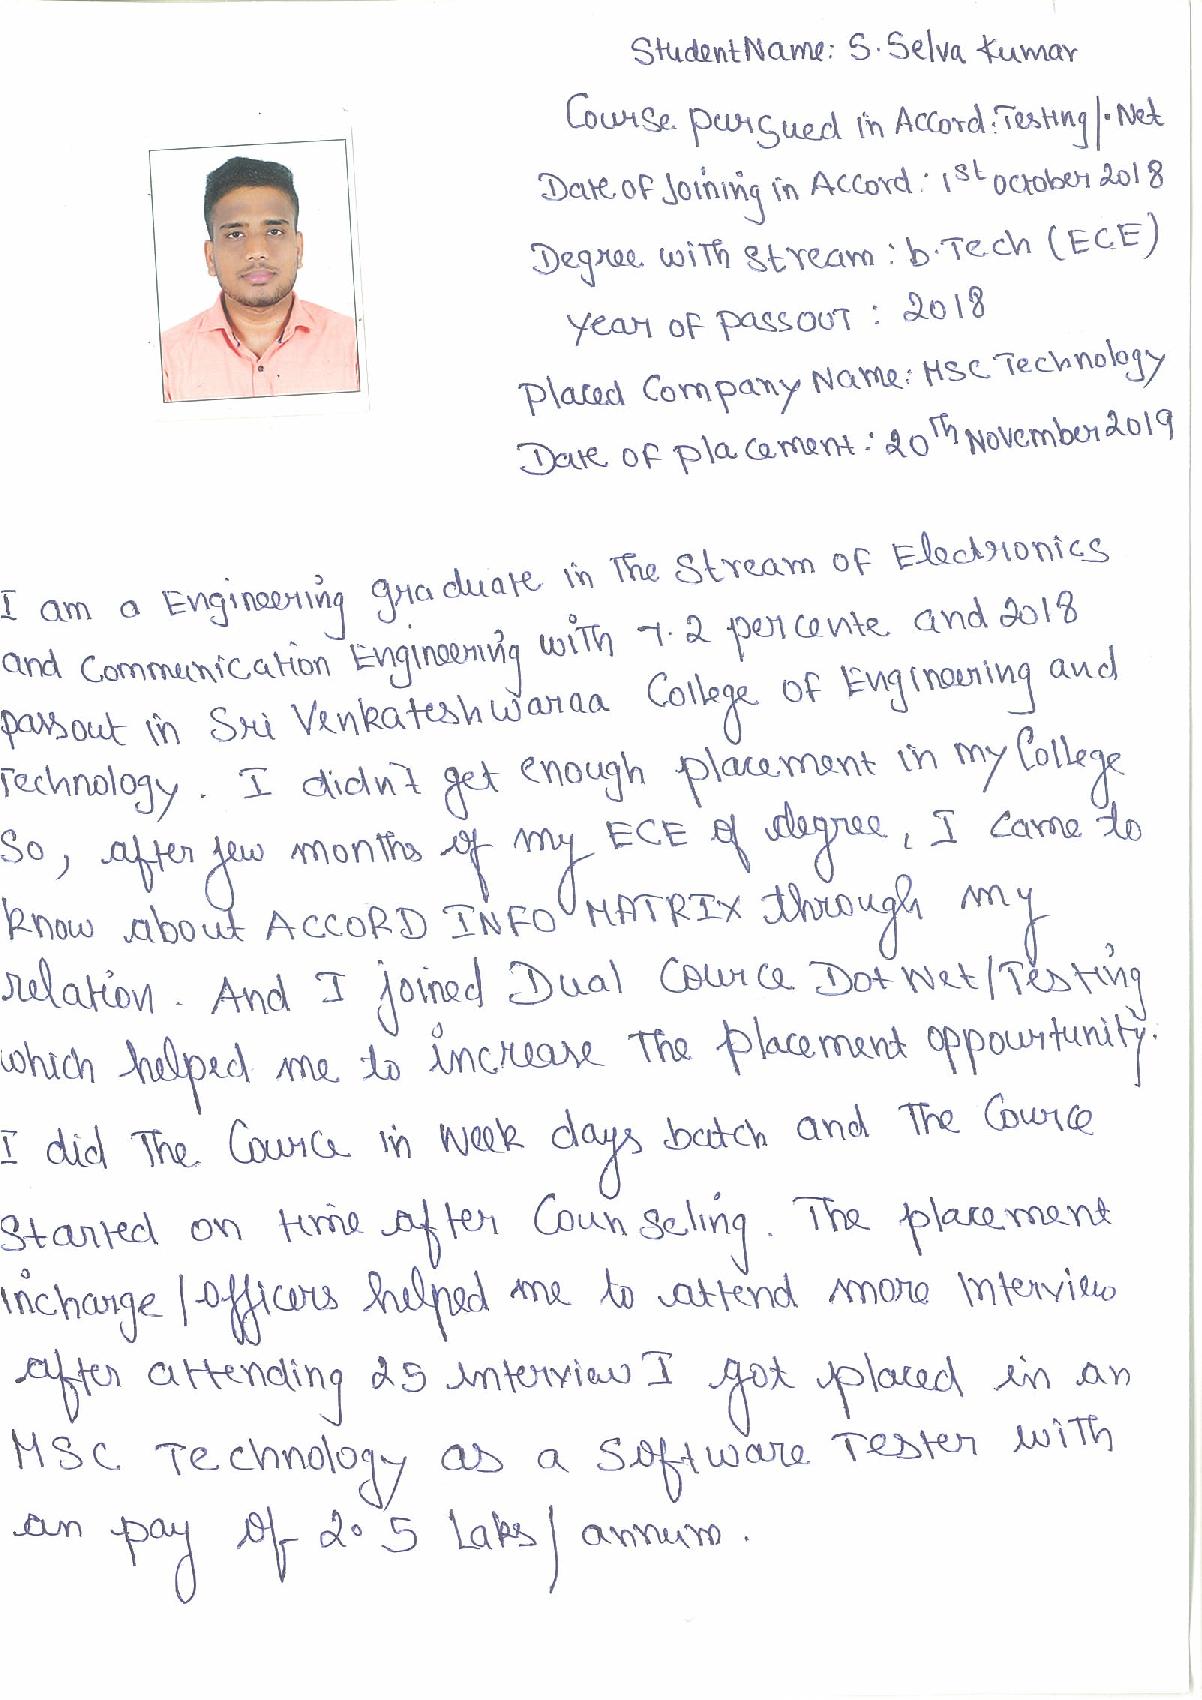 Student Name: S. Selva Kumar
Course pursued in Accord: Testing/.Net
Date of Joining in Accord: 1st October 2018
Degree with Stream: b.Tech (ECE)
Year of passout: 2018
Placed Company Name: MSC Technology
Date of placement: 20th November 2019
I am a Engineering graduate in The Stream of Electronics
and Communication Engineering with 7.2 percente and 2018
passout in Sri Venkateshwaraa College of Engineering and
Technology. I didn't get enough placement in my College
So, after few months of my ECE of degree, I came to
know about ACCORD INFO MATRIX through my
relation. And I joined Dual Cource Dot Net/Testing
which helped me to increase The placement oppourtunity.
I did The Cource in week days batch and The Cource
Started on time after Counseling. The placement
incharge/officers helped me to attend more Interview
after attending 25 interview I got placed in an
MSC Technology as a Software Tester with
an pay of 2.5 Laks/annum.